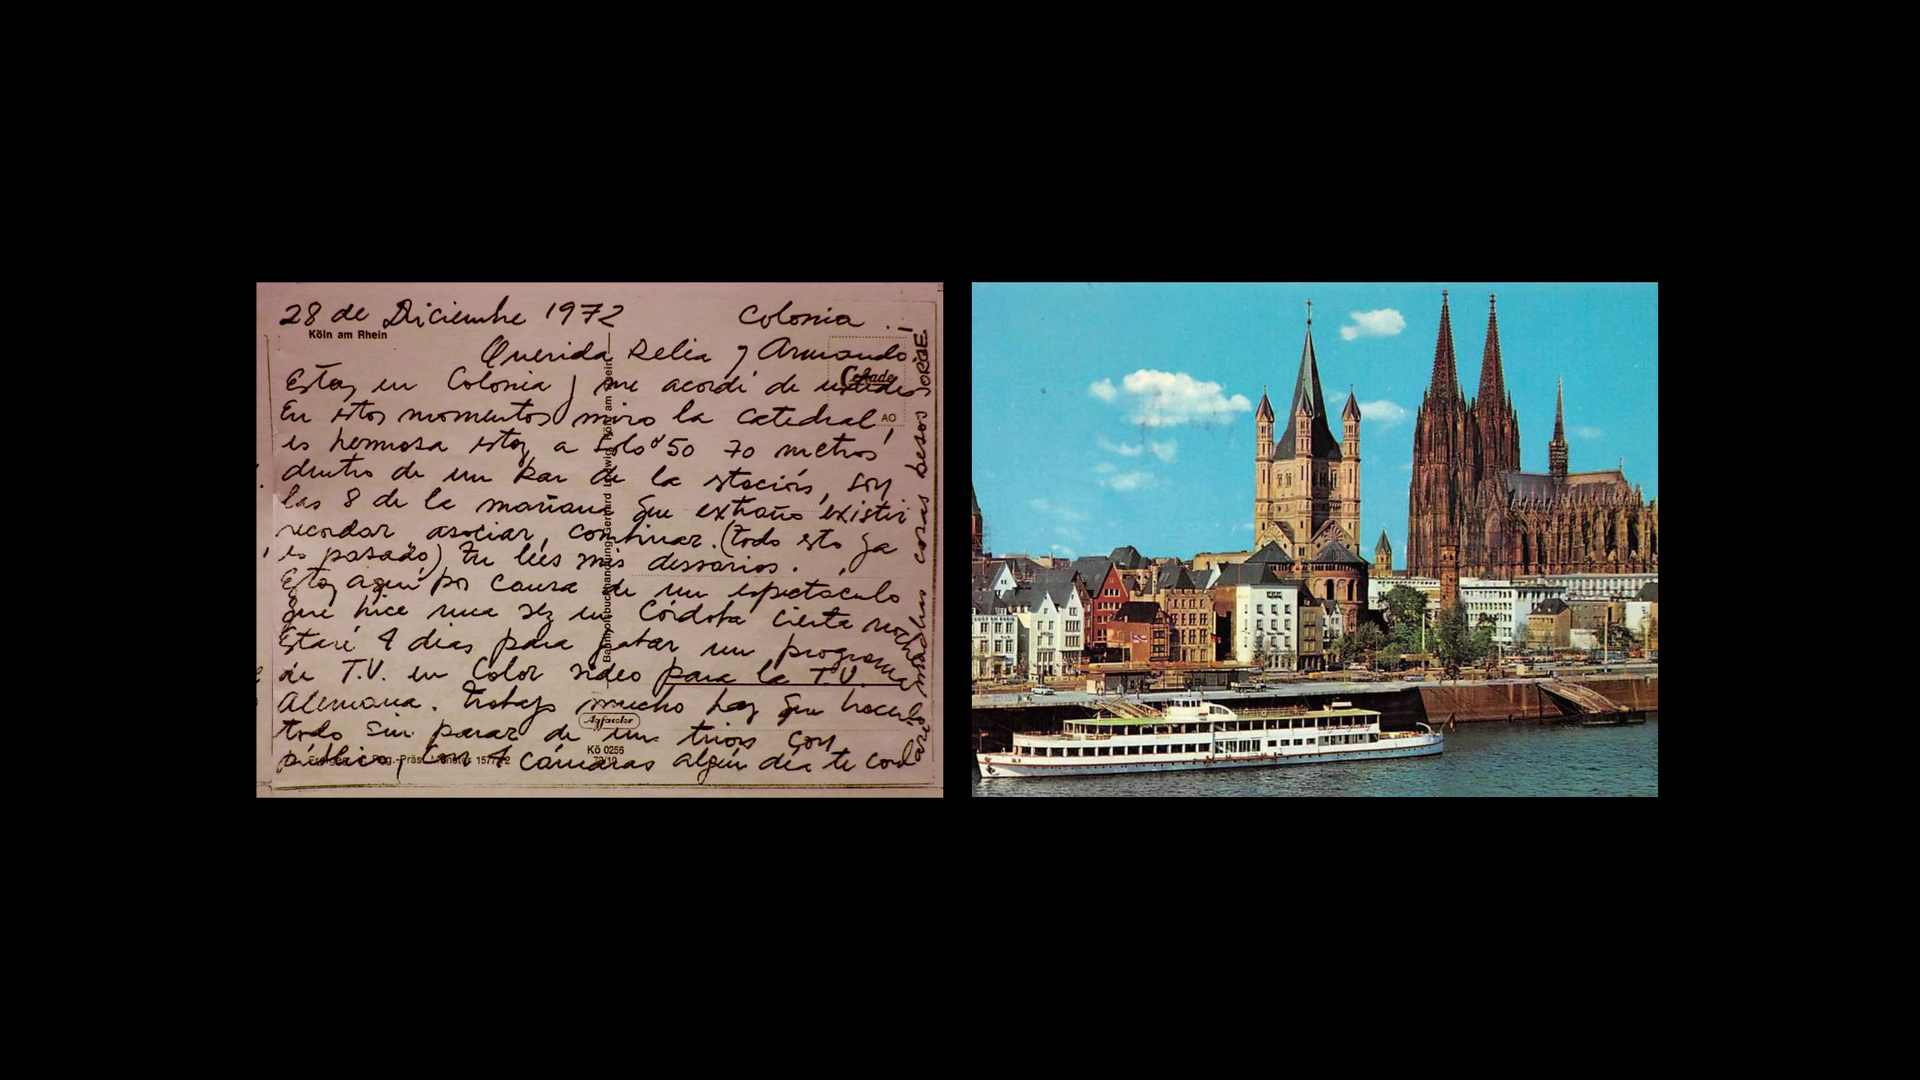 28 de Diciembre 1972 Colonia
Köln am Rhein
Querida Delia y Armando.
Estoy en Colonia y me acordé de ustedes
En estos momentos miro la catedral,
es hermosa estoy a solo 50 70 metros
dentro de un bar de la stación, son
las 8 de la mañana que extraño existir
recordar asociar, continuar. (todo esto ya
es pasado) tu lees mis desvarios.
Estoy aquí por causa de un espectáculo
que hice una vez en Córdoba cierta noche
Estaré 4 dias para grabar un programa
de T.V. en Color video para la T.V.
Alemana. Trabajo mucho hay que hacerlo
todo sin parar de un tirón con
público, con 4 cámaras algún día te cont
aré muchas cosas besos JORGE
Agfacolor
Kö 0256
AO